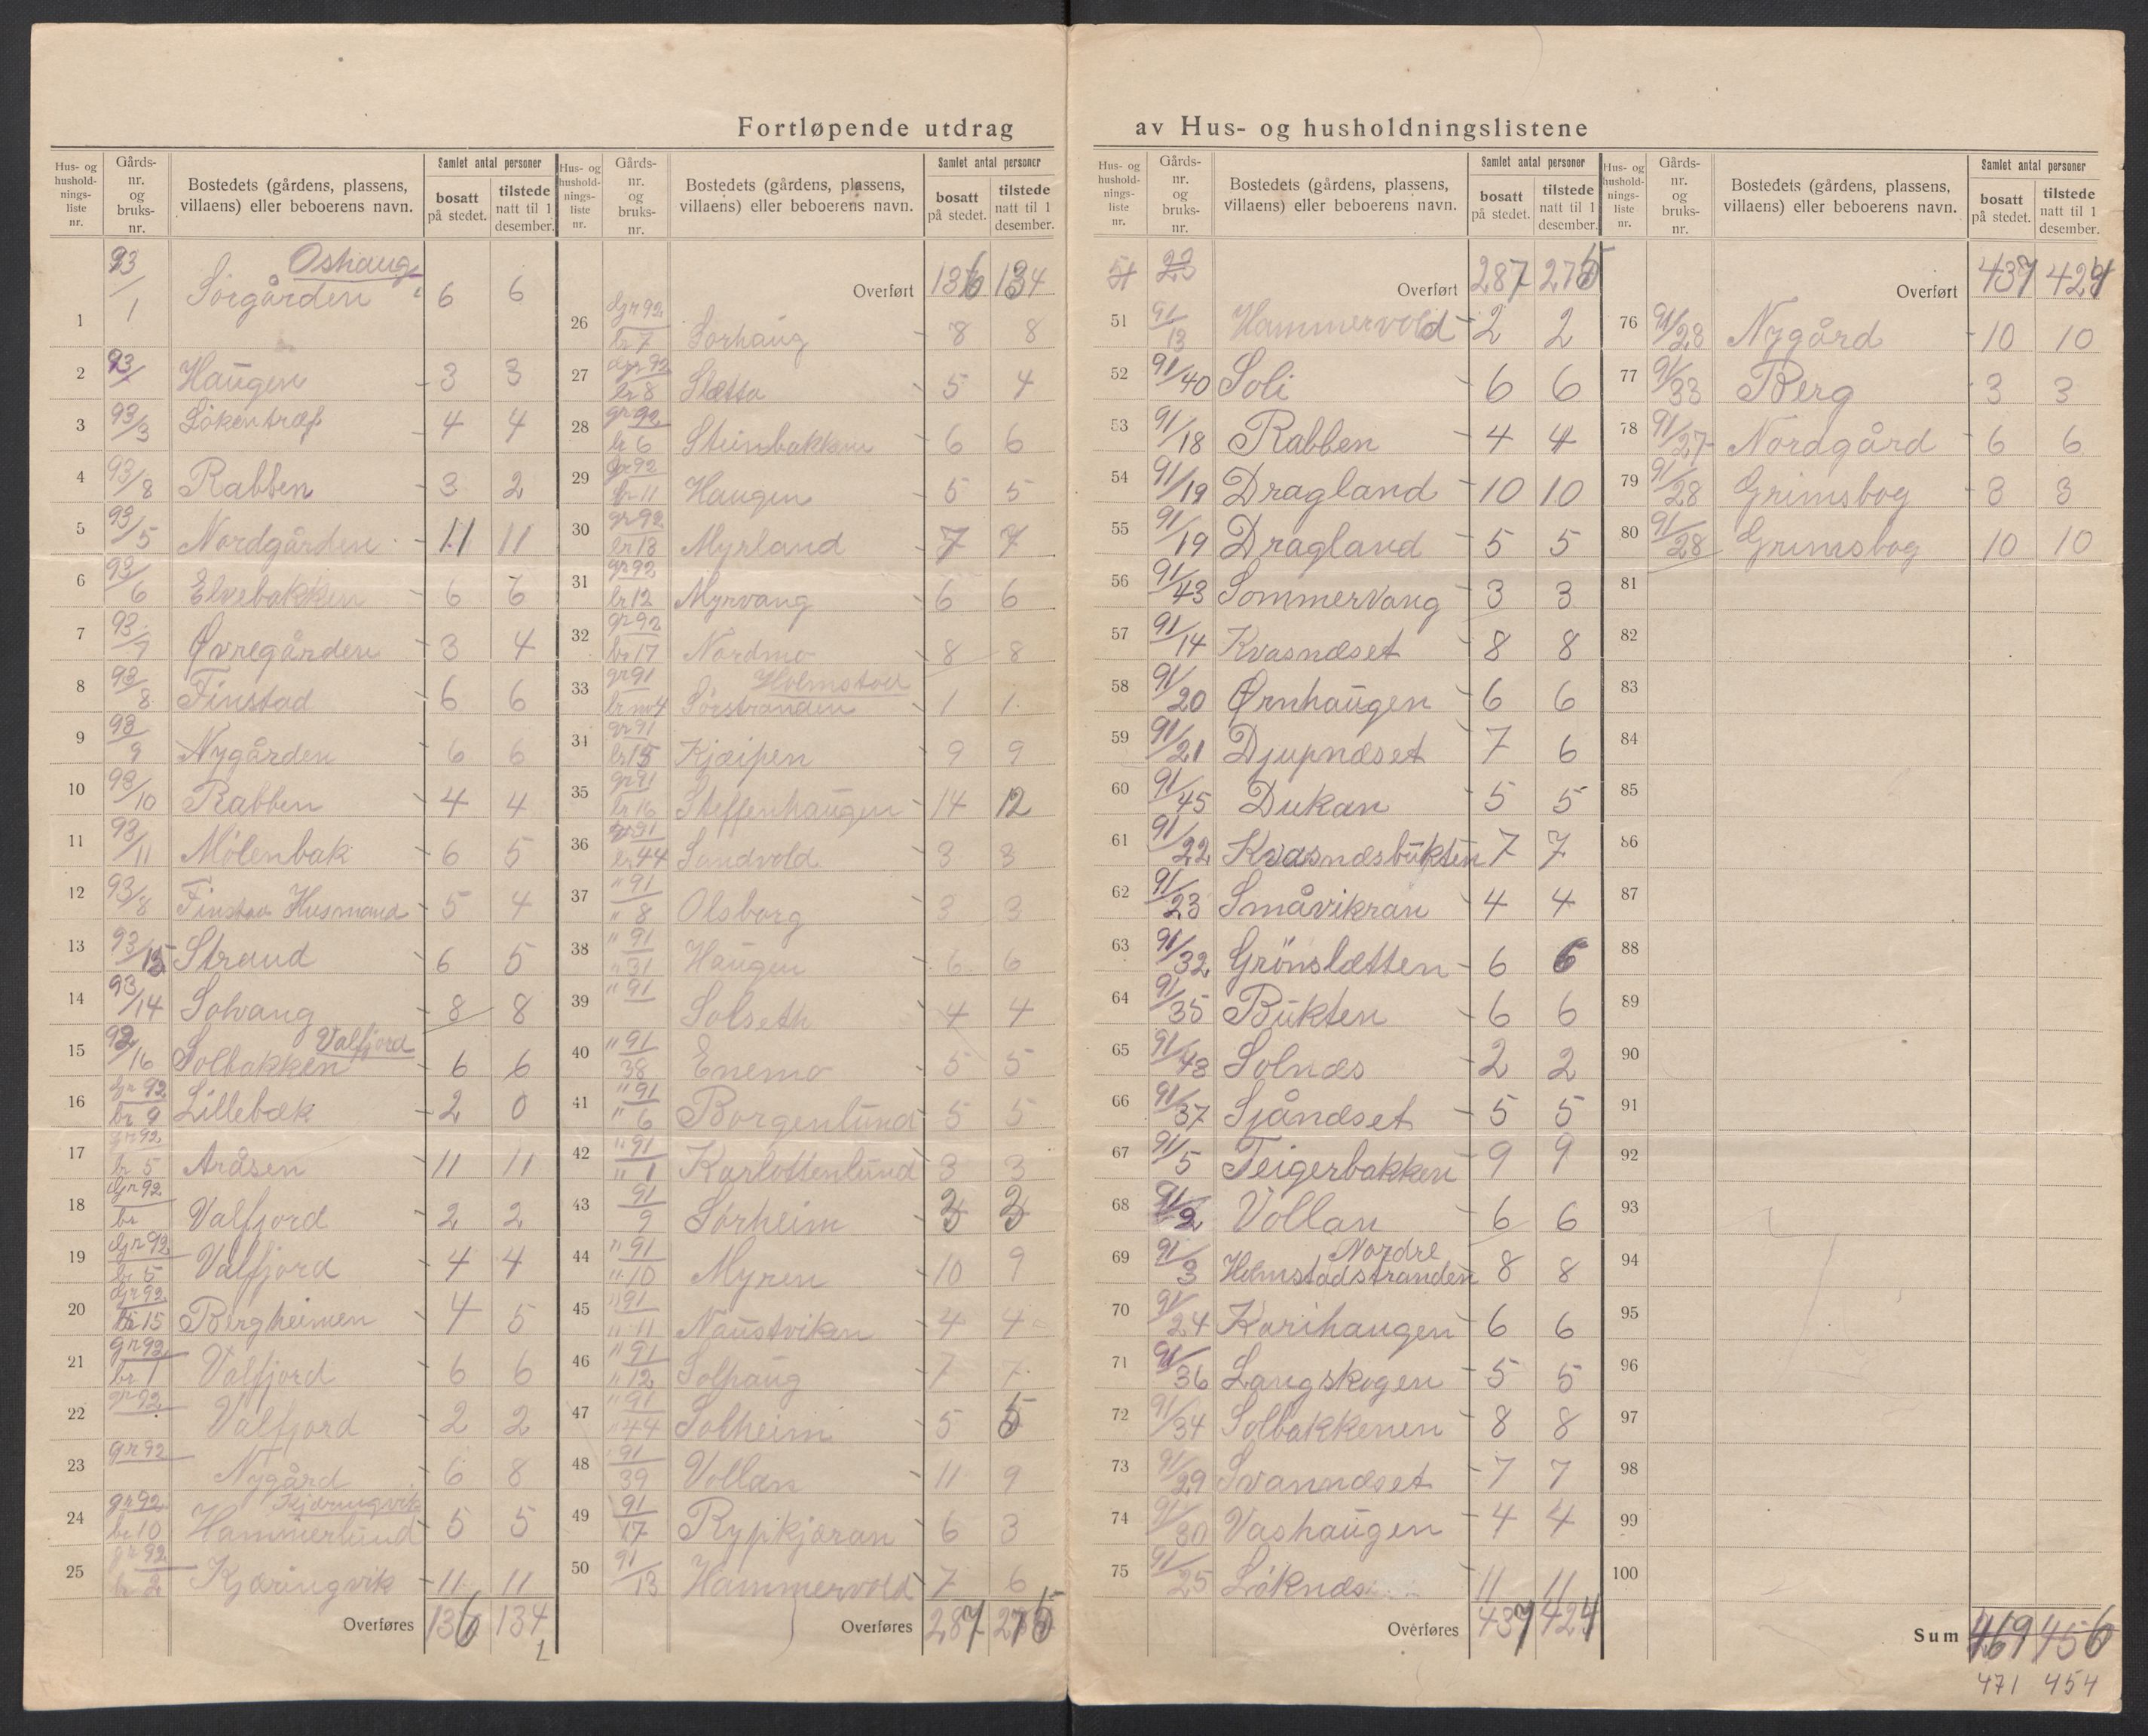 Fortløpende utdrag av Hus- og husholdningslistene
Hus- og hushold-nings-liste nr. Gårds-nr. og bruks-nr. Bostedets (gårdens, plassens, villaens) eller beboerens navn. Samlet antal personer bosatt på stedet. tilstede natt til 1 desember.
Oshaug
1 93/1 Sørgården 6 6
2 93/ Haugen 3 3
3 93/3 Løkentræf 4 4
4 93/8 Rabben 3 2
5 93/5 Nordgården 11 11
6 93/6 Elvebakken 6 6
7 93/7 Øvregården 3 4
8 93/8 Finstad 6 6
9 93/9 Nygården 6 6
10 93/10 Rabben 4 4
11 93/11 Mölenbak 6 5
12 93/8 Finstad Husmand 5 4
13 93/15 Strand 6 5
14 93/14 Solvang 8 8
Valfjord
15 92/16 Solbakken 6 6
16 Gr 92 br 9 Lillebæk 2 0
17 gr 92 br 5 Aråsen 11 11
18 Gr 92 br Valfjord 2 2
19 Gr 92 br 5 Valfjord 4 4
20 Gr 92 br 15 Bergheimen 4 5
21 gr 92 br 1 Valfjord 6 6
22 gr 92 Valfjord 2 2
23 gr 92 Nygård 6 8
Kjæringvik
24 gr 92 br 10 Hammerlund 5 5
25 gr 92 br 2 Kjæringvik 11 11
Overføres 136 134
Hus- og hushold-nings-liste nr. Gårds-nr. og bruks-nr. Bostedets (gårdens, plassens, villaens) eller beboerens navn. Samlet antal personer bosatt på stedet. tilstede natt til 1 desember.
Overført 136 134
26 Gr 92 br 7 Sørhaug 8 8
27 gr 92 br 8 Slætta 5 4
28 gr 92 br 6 Steinbakken 6 6
29 gr 92 br 11 Haugen 5 5
30 gr 92 br 13 Myrland 7 7
31 gr 92 br 12 Myrvang 6 6
32 gr 92 br 17 Nordmo 8 8
Holmstad
33 gr 91 br 4 Sørstranden 1 1
34 gr 91 br 15 Kjæipen 9 9
35 gr 91 br 16 Steffenhaugen 14 12
36 gr 91 br 44 Sandvold 3 3
37 " 91 " 8 Olsborg 3 3
38 " 91 " 31 Haugen 6 6
39 " 91 Solseth 4 4
40 " 91 38 Enemo 5 5
41 " 91 " 6 Borgenlund 5 5
42 " 91 " 1 Karlottenlund 3 3
43 91 9 Sørheim 3 3
44 " 91 " 10 Myren 10 9
45 " 91 " 11 Naustviken 4 4
46 " 91 " 12 Solhaug 7 7
47 " 91 " 44 Solheim 5 5
48 91 39 Vollan 11 9
49 91 17 Rypkjæran 6 3
50 91 13 Hammervold 7 6
Overføres 287 275
Hus- og hushold-nings-liste nr. Gårds-nr. og bruks-nr. Bostedets (gårdens, plassens, villaens) eller beboerens navn. Samlet antal personer bosatt på stedet. tilstede natt til 1 desember.
Overført 287 275
51 91/13 Hammervold 2 2
52 91/40 Soli 6 6
53 91/18 Rabben 4 4
54 91/19 Dragland 10 10
55 91/19 Dragland 5 5
56 91/43 Sommervang 3 3
57 91/14 Kvasnæset 8 8
58 91/20 Ørnhaugen 6 6
59 91/21 Djupnæset 7 6
60 91/45 Dukan 5 5
61 91/22 Kvasnæsbukten 7 7
62 91/23 Småvikran 4 4
63 91/32 Grönslætten 6 6
64 91/35 Bukten 6 6
65 91/48 Solnæs 2 2
66 91/37 Sjånæset 5 5
67 91/5 Teigerbakken 9 9
68 91/2 Vollan 6 6
Nordre
69 91/3 Holmstadstranden 8 8
70 91/24 Karihaugen 6 6
71 91/36 Langskogen 5 5
72 91/34 Solbakkenen 8 8
73 91/29 Svannæset 7 7
74 91/30 Vashaugen 4 4
75 91/25 Löknæs 11 11
Overføres 437 424
Hus- og hushold-nings-liste nr. Gårds-nr. og bruks-nr. Bostedets (gårdens, plassens, villaens) eller beboerens navn. Samlet antal personer bosatt på stedet. tilstede natt til 1 desember.
Overført 437 424
76 91/28 Nygård 10 10
77 91/33 Berg 3 3
78 91/27 Nordgård 6 6
79 91/28 Grimsbog 3 3
80 91/28 Grimsbog 10 10
81
82
83
84
85
86
87
88
89
90
91
92
93
94
95
96
97
98
99
100
Sum 469 456
471 454